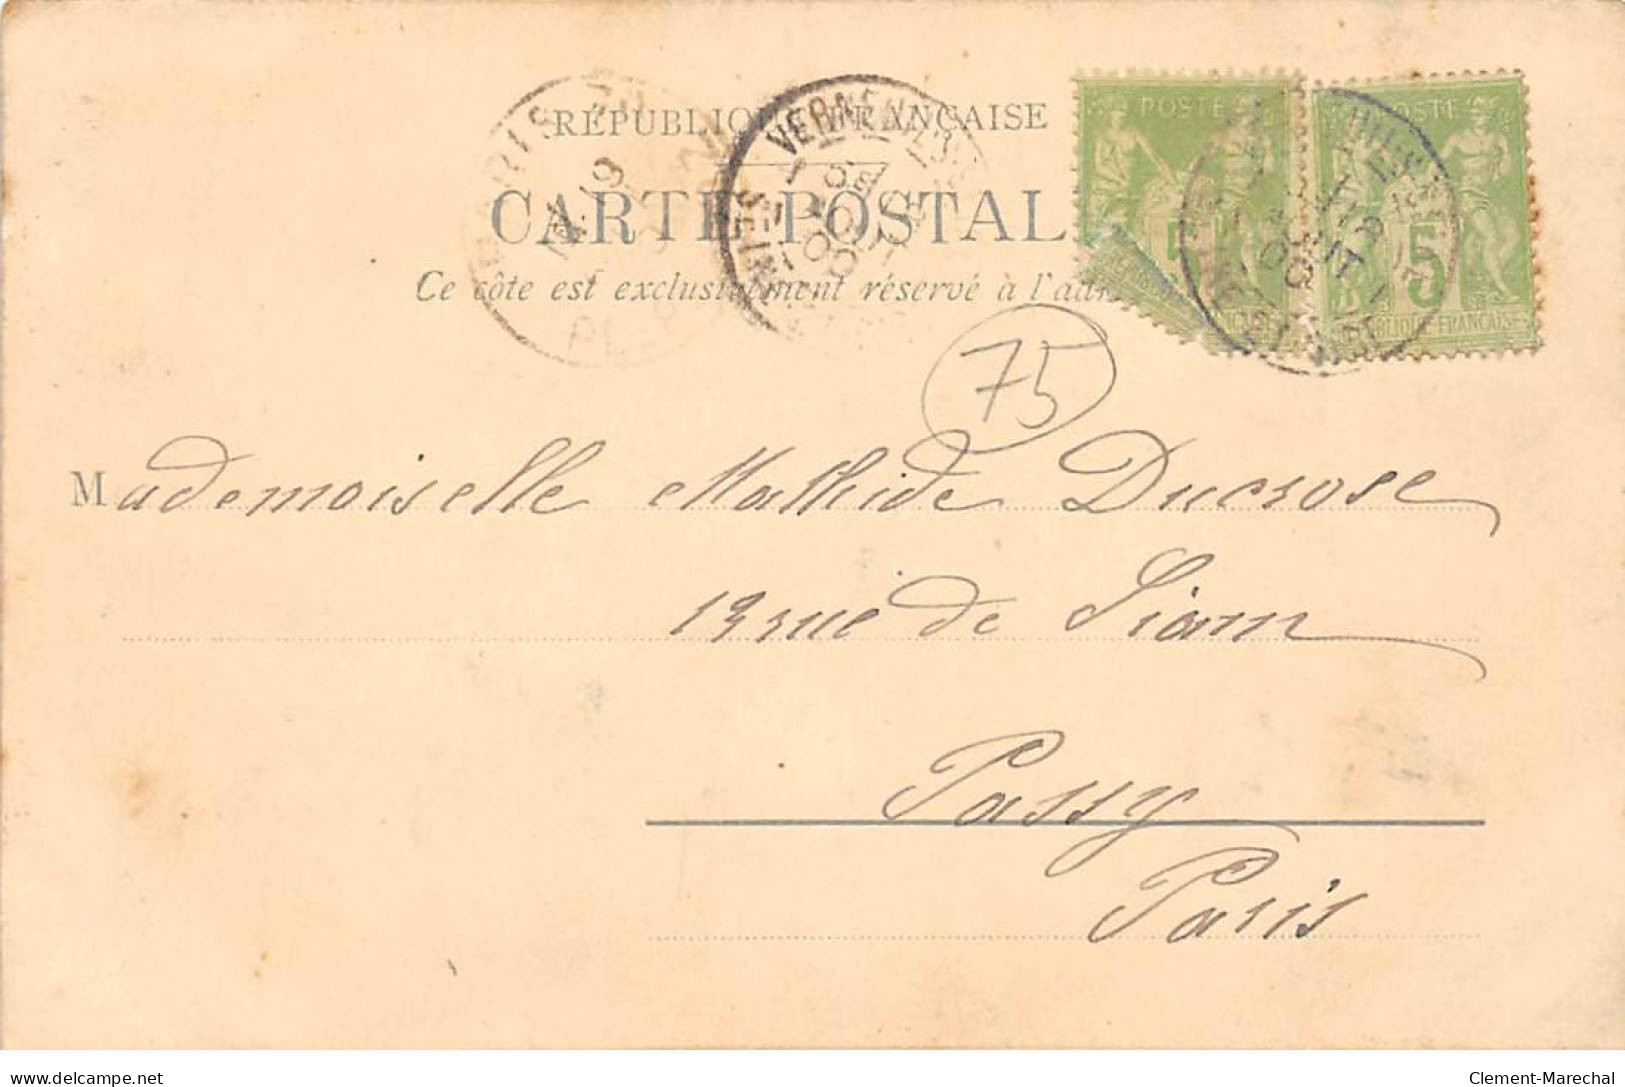 RÉPUBLIQUE FRANÇAISE
CARTE POSTALE
Ce côte est exclusivement réservé à l'adresse
POSTE
POSTE
5
RÉPUBLIQUE FRANÇAISE
75
Mademoiselle Mathide Ducrose
13 rue de Siam
Passy
Paris
delcampe.net
Clement-Marechal